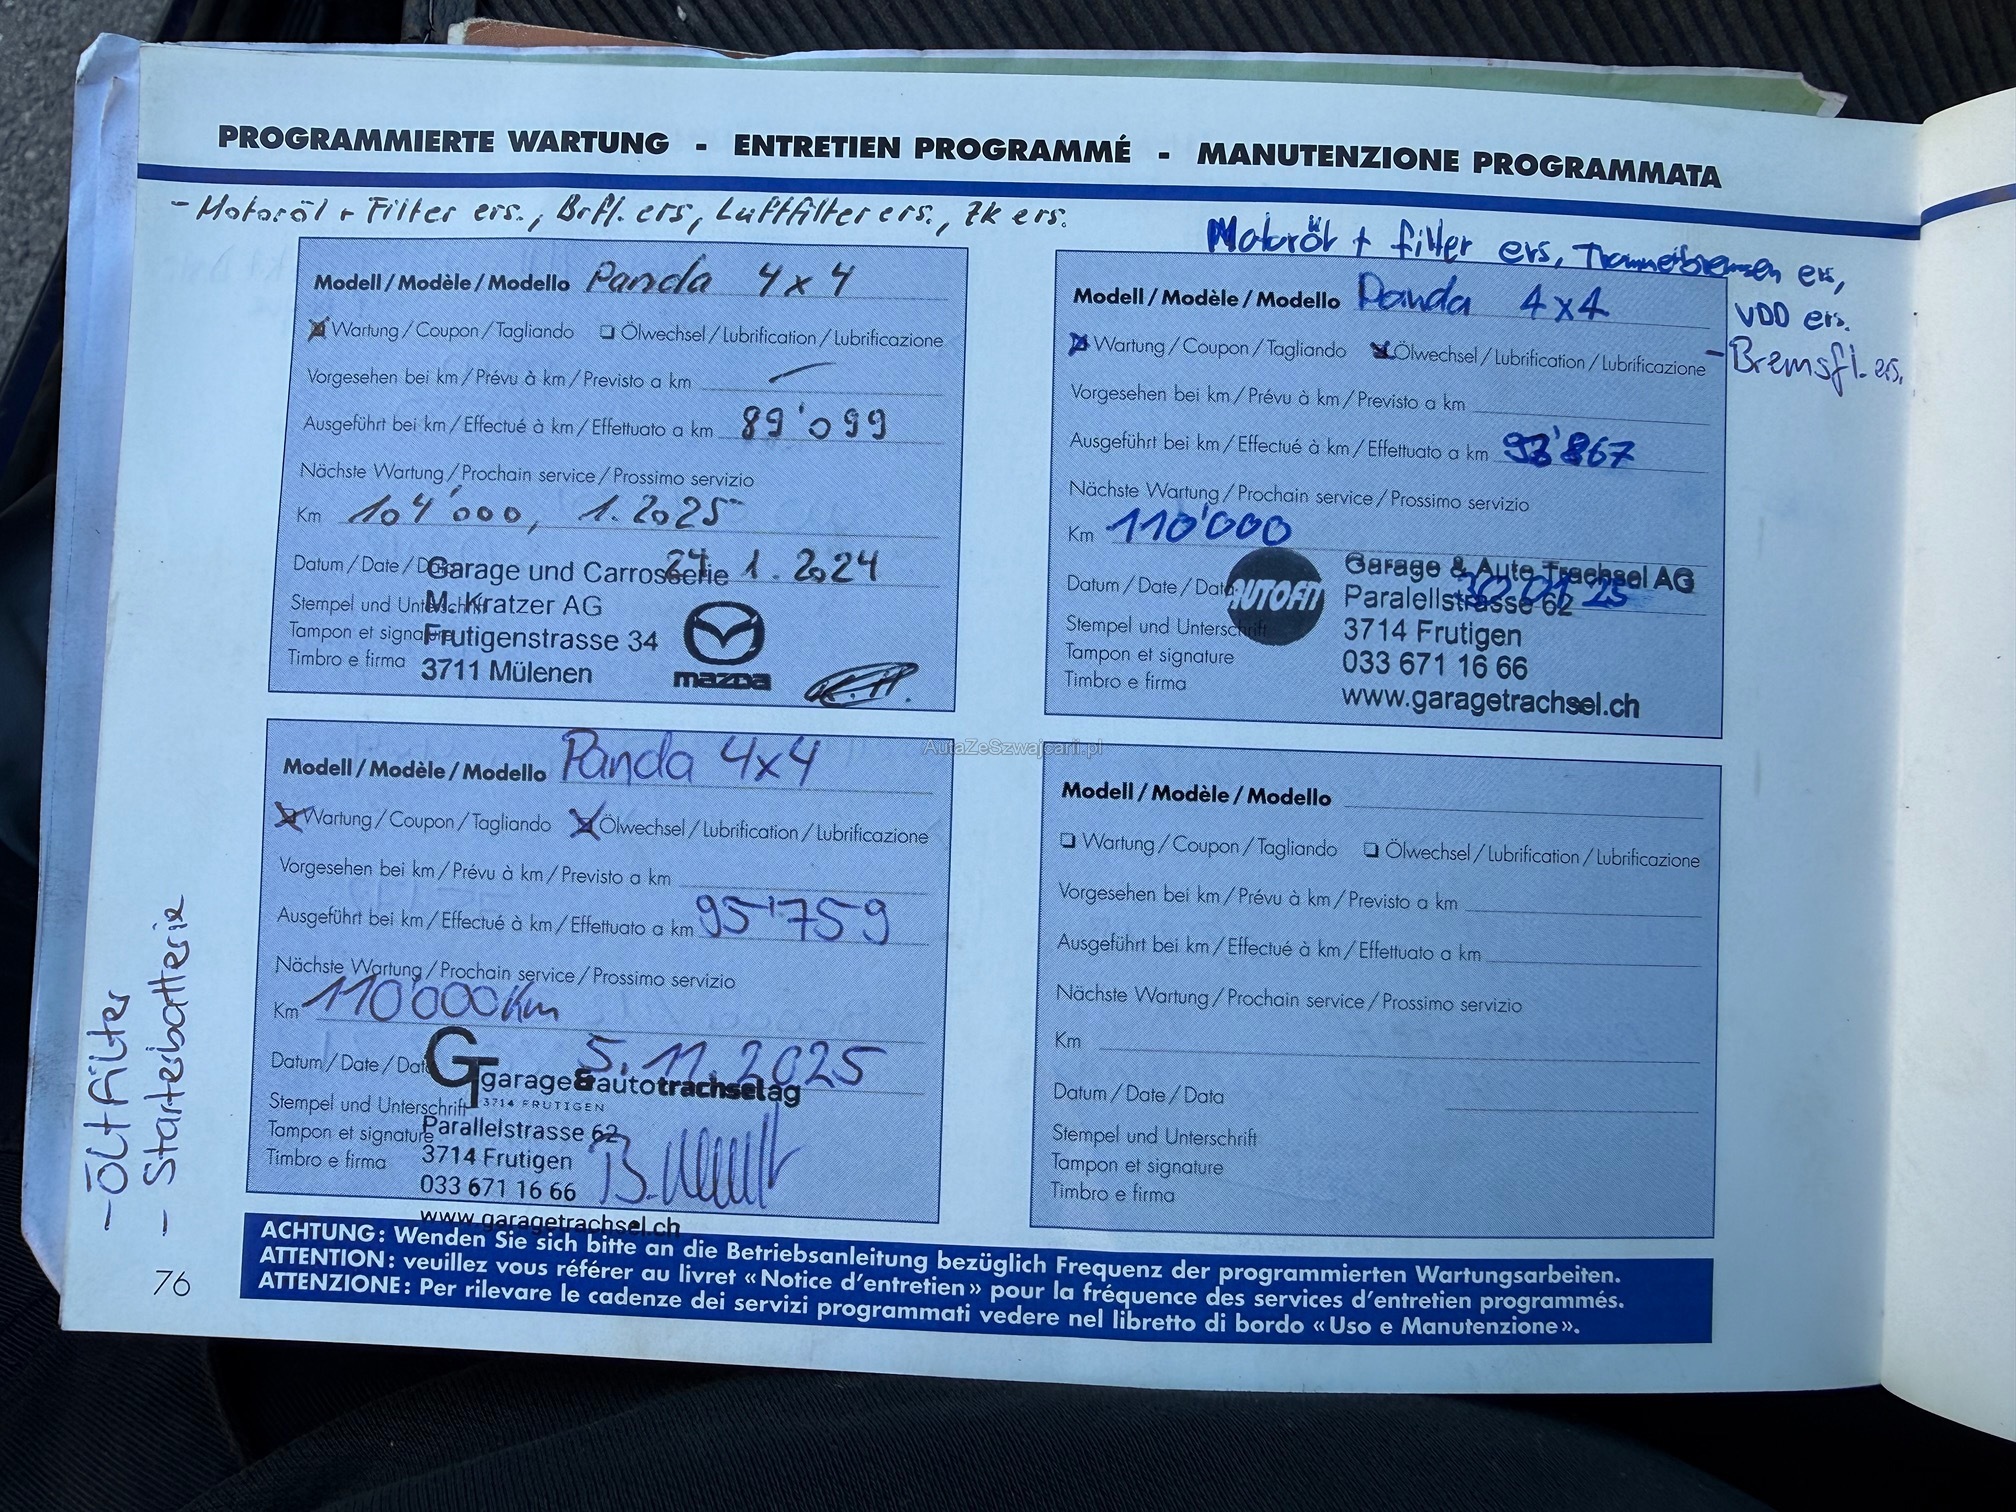 PROGRAMMIERTE WARTUNG - ENTRETIEN PROGRAMMÉ - MANUTENZIONE PROGRAMMATA
- Motoröl + Filter ers., Brfl. ers, Luftfilter ers., ZK ers.
Modell / Modèle / Modello Panda 4x4
Wartung / Coupon / Tagliando Ölwechsel / Lubrification / Lubrificazione
Vorgesehen bei km / Prévu à km / Previsto a km
Ausgeführt bei km / Effectué à km / Effettuato a km 89'099
Nächste Wartung / Prochain service / Prossimo servizio
Km 104'000, 1.2025
Datum / Date / Data 24 1. 2024
Stempel und Unterschrift
Tampon et signature
Timbro e firma
Garage und Carrosserie
M. Kratzer AG
Frutigenstrasse 34
3711 Mülenen
mazda
Motoröl + filter ers, Trommelbremsen ers,
VDD ers.
- Bremsfl. ers.
Modell / Modèle / Modello Panda 4x4
Wartung / Coupon / Tagliando Ölwechsel / Lubrification / Lubrificazione
Vorgesehen bei km / Prévu à km / Previsto a km
Ausgeführt bei km / Effectué à km / Effettuato a km 93'867
Nächste Wartung / Prochain service / Prossimo servizio
Km 110'000
Datum / Date / Data 30 01 25
Stempel und Unterschrift
Tampon et signature
Timbro e firma
AUTOFIT
Garage & Auto Trachsel AG
Paralellstrasse 62
3714 Frutigen
033 671 16 66
www.garagetrachsel.ch
AutaZeSzwajcarii.pl
- Ölfilter
- Starterbatterie
Modell / Modèle / Modello Panda 4x4
Wartung / Coupon / Tagliando Ölwechsel / Lubrification / Lubrificazione
Vorgesehen bei km / Prévu à km / Previsto a km
Ausgeführt bei km / Effectué à km / Effettuato a km 95'759
Nächste Wartung / Prochain service / Prossimo servizio
Km 110'000 Km
Datum / Date / Data 5.11.2025
Stempel und Unterschrift
Tampon et signature
Timbro e firma
GT garage&autotrachselag
3714 FRUTIGEN
Parallelstrasse 62
3714 Frutigen
033 671 16 66
www.garagetrachsel.ch
Modell / Modèle / Modello
Wartung / Coupon / Tagliando Ölwechsel / Lubrification / Lubrificazione
Vorgesehen bei km / Prévu à km / Previsto a km
Ausgeführt bei km / Effectué à km / Effettuato a km
Nächste Wartung / Prochain service / Prossimo servizio
Km
Datum / Date / Data
Stempel und Unterschrift
Tampon et signature
Timbro e firma
ACHTUNG: Wenden Sie sich bitte an die Betriebsanleitung bezüglich Frequenz der programmierten Wartungsarbeiten.
ATTENTION: veuillez vous référer au livret «Notice d'entretien» pour la fréquence des services d'entretien programmés.
ATTENZIONE: Per rilevare le cadenze dei servizi programmati vedere nel libretto di bordo «Uso e Manutenzione».
76